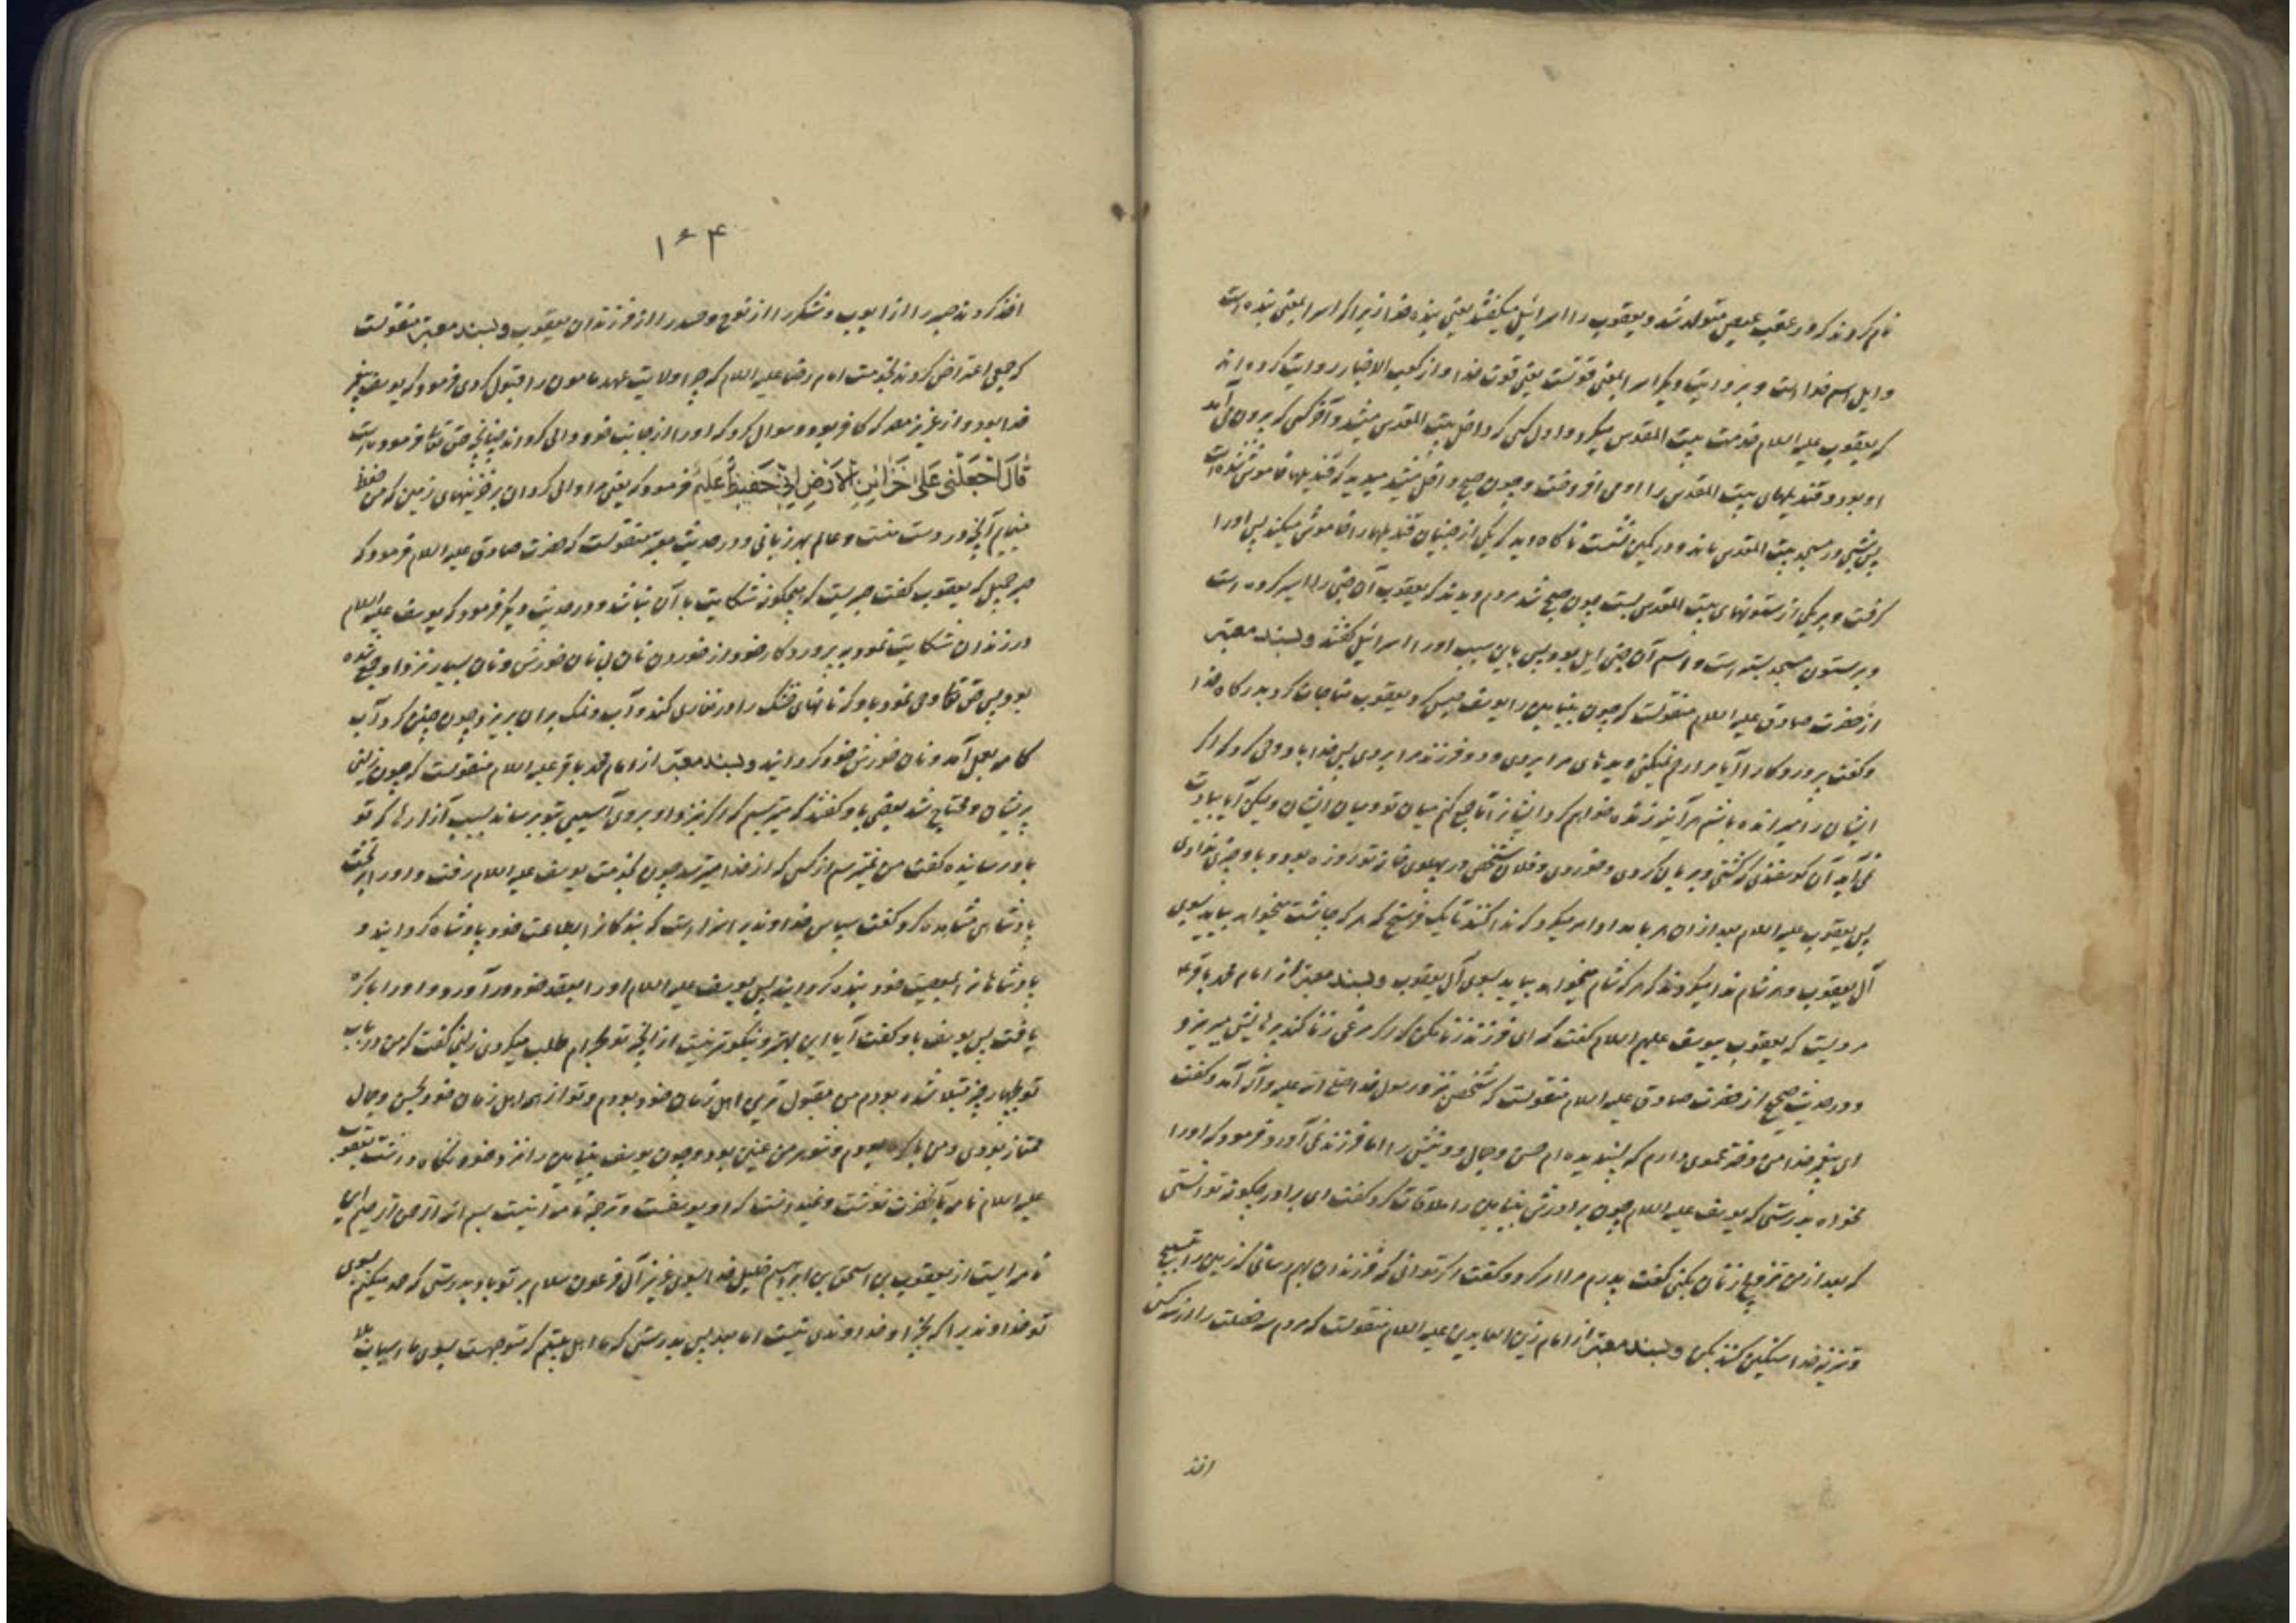 نام کردند که در عقب عیص متولد شد و یعقوب را اسرائیل میگفتند یعنی بنده خدا زیرا که اسرا بمعنی بنده است
و ایل اسم خدا است و بروایت دیگر اسرا بمعنی قوتست یعنی قوت خدا و از کعب الاخبار روایت کرده اند
که یعقوب علیه السلام خدمت بیت المقدس میکرد و اول کسی که داخل بیت المقدس میشد و آخر کسی که بیرون می آمد
او بود و قندیلهای بیت المقدس را او می افروخت و چون صبح داخل میشد میدید که قندیلها خاموش شده است
پس شبی در مسجد بیت المقدس ماند و در کمین نشست ناگاه دید که یکی از جنیان قندیلها را خاموش میکند پس او را
گرفت و بر یکی از ستونهای بیت المقدس بست چون صبح شد مردم دیدند که یعقوب آن جنی را اسیر کرده است
و بر ستون مسجد بسته است و اسم آن جنی ایل بود پس باین سبب او را اسرائیل گفتند و بسند معتبر
از حضرت صادق علیه السلام منقولست که چون بنیامین را یوسف حبس کرد یعقوب مناجات کرد بدرگاه خدا
و گفت پروردگارا آیا مرا رحم نمیکنی دیدهای مرا بردی و دو فرزند مرا بردی پس خدا باو وحی کرد که اگر
ایشان را میرانده باشم هر آینه زنده خواهم کرد ایشان را تا جمع کنم میان تو و میان ایشان ولیکن آیا بیادت
نمی آید آن گوسفندی که کشتی و بریان کردی و خوردی و فلان شخص در پهلوی خانه تو روزه بود و باو چیزی ندادی
پس یعقوب علیه السلام بعد از آن هر بامداد امر میکرد که ندا کنند تا یک فرسخ که هر که چاشت میخواهد بیاید بسوی
آل یعقوب و هر شام ندا میکردند که هر که شام میخواهد بیاید بسوی آل یعقوب و بسند معتبر از امام محمد باقر
مرویست که یعقوب بیوسف علیهم السلام گفت که ای فرزند زنا مکن که اگر مرغی زنا کند پرهایش میریزد
و در حدیث صحیح از حضرت صادق علیه السلام منقولست که شخصی نزد رسول خدا صلی الله علیه و آله آمد و گفت
ای پیغمبر خدا من دختر عموی دارم که پسندیده ام حسن و جمال و دینش را اما فرزند نمی آورد فرمود که او را
مخواه بدرستی که یوسف علیه السلام چون برادرش بنیامین را ملاقات کرد گفت ای برادر چگونه توانستی
که بعد از من تزویج زنان بکنی گفت پدرم مرا امر کرد و گفت اگر توانی که فرزندان بهم رسانی که زمین را بتسبیح
و تنزیه خدا سنگین کنند بکن و بسند معتبر از امام زین العابدین علیه السلام منقولست که مردم سه خصلت را از سه کس
اخذ
۱۶۴
اخذ کردند صبر را از ایوب و شکر را از نوح و حسد را از فرزندان یعقوب و بسند معتبر منقولست
که جمعی اعتراض کردند بخدمت امام رضا علیه السلام که چرا ولایت عهد مامون را قبول کردی فرمود که یوسف پیغمبر
خدا بود و از عزیز مصر که کافر بود سوال کرد که او را از جانب خود والی گرداند چنانچه حق تعالی فرموده است
قَالَ اجْعَلْنِی عَلَی خَزَائِنِ الْاَرْضِ اِنِّی حَفِیظٌ عَلِیمٌ فرمود که یعنی مرا والی گردان بر خزینهای زمین که من حفظ
مینمایم آنچه در دست منست و عالم بهر زبانی و در حدیث معتبر منقولست که حضرت صادق علیه السلام فرمود که
صبر جمیل که یعقوب گفت صبریست که هیچگونه شکایت با آن نباشد و در حدیث دیگر فرمود که یوسف علیه السلام
در زندان شکایت نمود به پروردگار خود از خوردن نان بی نان خورش و نان بسیار نزد او جمع شده
بود پس حق تعالی وحی نمود باو که نانهای خشک را در تغاری کند و آب و نمک بر آن بریزد چون چنین کرد آب
کامه بعمل آمد و نان خورش خود گردانید و بسند معتبر از امام محمد باقر علیه السلام منقولست که چون زلیخا
پریشان و محتاج شد بعضی باو گفتند که میترسیم که اگر نزد او بروی آسیبی بتو برساند بسبب آزارها که تو
باو رسانیده گفت من نمیترسم از کسی که از خدا میترسد چون بخدمت یوسف علیه السلام رفت و او را بر تخت
پادشاهی مشاهده کرد گفت سپاس خداوندی را سزاست که بندگانرا بطاعت خود پادشاه گردانید و
پادشاهانرا بمعصیت خود بنده گردانید پس یوسف علیه السلام او را بعقد خود در آورد و او را باکره
یافت پس یوسف باو گفت آیا این بهتر و نیکوتر نیست از آنچه تو بحرام طلب میکردی زلیخا گفت که من در باب
تو بچهار چیز مبتلا شده بودم من مقبول ترین اهل زمان خود بودم و تو از همه اهل زمان خود بحسن و جمال
ممتاز بودی و من باکره بودم و شوهر من عنین بود و چون یوسف بنیامین را نزد خود نگاه داشت یعقوب
علیه السلام نامه بآنحضرت نوشت و نمیدانست که او یوسفست و ترجمه نامه اینست بسم الله الرحمن الرحیم این
نامه ایست از یعقوب بن اسحق بن ابراهیم خلیل خدا بسوی عزیز آل فرعون سلام بر تو باد بدرستی که حمد میکنم بسوی
تو خداوندیرا که بجز او خداوندی نیست اما بعد پس بدرستی که ما اهل بیتیم که متوجهست بسوی ما اسباب بلا